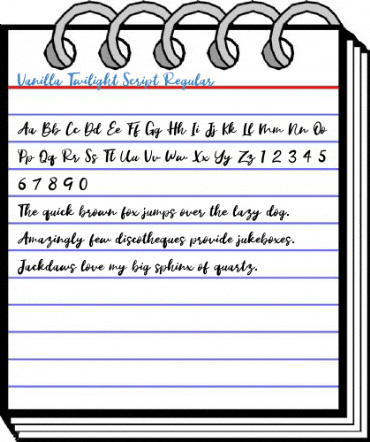 Vanilla Twilight Script Regular
Aa Bb Cc Dd Ee Ff Gg Hh Ii Jj Kk Ll Mm Nn Oo
Pp Qq Rr Ss Tt Uu Vv Ww Xx Yy Zz 1 2 3 4 5
6 7 8 9 0
The quick brown fox jumps over the lazy dog.
Amazingly few discotheques provide jukeboxes.
Jackdaws love my big sphinx of quartz.